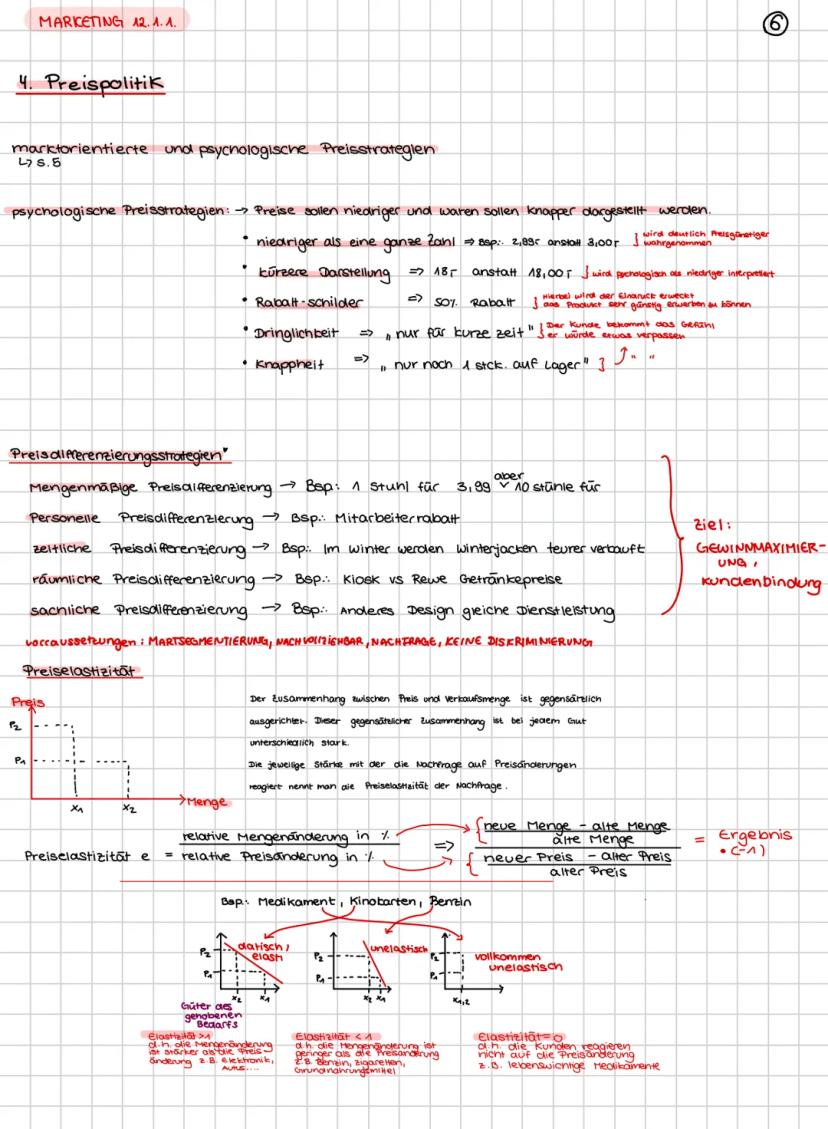 MARKETING 12.1.1.
6
4. Preispolitik
marktorientierte und psychologische Preisstrategien
↳ S.5
psychologische Preisstrategien: → Preise sollen niedriger und waren sollen knapper dargestellt werden.
• niedriger als eine ganze Zahl ⇒ Bsp.: 2,89€ anstatt 3,00€ } wird deutlich Preisgünstiger
wahrgenommen
• kürzere Darstellung ⇒ 18€ anstatt 18,00€ } wird psychologisch als niedriger interpretiert
• Rabatt-schilder ⇒ 50% Rabatt } Hierbei wird der Eindruck erweckt
das Produkt sehr günstig erwerben zu können
• Dringlichkeit ⇒ „nur für kurze Zeit" } Der Kunde bekommt das Gefühl
er würde etwas verpassen
• Knappheit ⇒ „nur noch 1 stck. auf Lager" } " "
Preisdifferenzierungsstrategien*
aber
Mengenmäßige Preisdifferenzierung → Bsp: 1 Stuhl für 3,99 10 stühle für
Personelle Preisdifferenzierung → Bsp.: Mitarbeiterrabatt
zeitliche Preisdifferenzierung → Bsp.: Im Winter werden Winterjacken teurer verkauft
räumliche Preisdifferenzierung → Bsp.: Kiosk vs Rewe Getränkepreise
sachliche Preisdifferenzierung → Bsp.: Anderes Design gleiche Dienstleistung
Ziel:
GEWINNMAXIMIER-
UNG,
Kundenbindung
Vorraussetzungen: MARTSEGMENTIERUNG, NACHVOLLZIEHBAR, NACHFRAGE, KEINE DISKRIMINIERUNG
Preiselastizität
Preis
P2
P1
x1 x2
Menge
Der Zusammenhang zwischen Preis und Verkaufsmenge ist gegensätzlich
ausgerichtet. Dieser gegensätzlicher Zusammenhang ist bei jedem Gut
unterschiedlich stark.
Die jeweilige Stärke mit der die Nachfrage auf Preisänderungen
reagiert nennt man die Preiselastizität der Nachfrage.
relative Mengenänderung in %
Preiselastizität e = relative Preisänderung in %
⇒
neue Menge - alte Menge
alte Menge
neuer Preis - alter Preis
alter Preis
= Ergebnis
• (-1)
Bsp.: Medikament, Kinokarten, Benzin
P2
P1
x2 x1
elastisch
Güter des
gehobenen
Bedarfs
P2
P1
x2 x1
unelastisch
P2
P1
x1,2
vollkommen
unelastisch
Elastizität >1
d.h. die Mengenänderung
ist stärker als die Preis-
änderung z.B. Elektronik,
Autos....
Elastizität < 1
d.h. die Mengenänderung ist
geringer als die Preisänderung
z.B. Benzin, Zigaretten,
Grundnahrungsmittel
Elastizität = 0
d.h. die Kunden reagieren
nicht auf die Preisänderung
z.B. lebenswichtige Medikamente